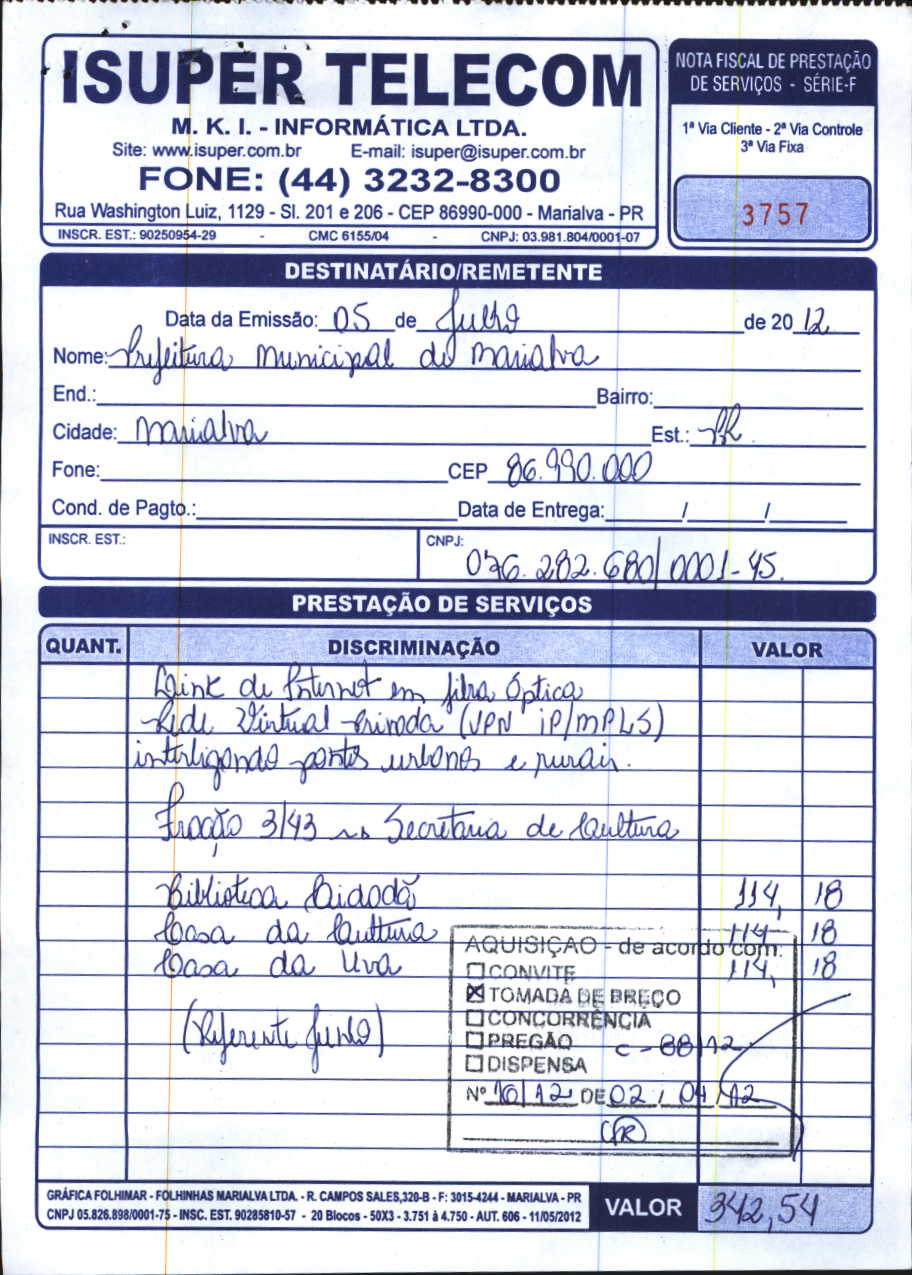 ISUPER TELECOM
M. K. I. - INFORMÁTICA LTDA.
Site: www.isuper.com.br E-mail: isuper@isuper.com.br
FONE: (44) 3232-8300
Rua Washington Luiz, 1129 - Sl. 201 e 206 - CEP 86990-000 - Marialva - PR
INSCR. EST.: 90250954-29 - CMC 6155/04 - CNPJ: 03.981.804/0001-07
NOTA FISCAL DE PRESTAÇÃO
DE SERVIÇOS - SÉRIE-F
1ª Via Cliente - 2ª Via Controle
3ª Via Fixa
3757
DESTINATÁRIO/REMETENTE
Data da Emissão: 05 de Julho de 2012
Nome: Prefeitura Municipal de Marialva
End.: Bairro:
Cidade: Marialva Est.: PR.
Fone: CEP 86.990.000
Cond. de Pagto.: Data de Entrega: / /
INSCR. EST.: CNPJ: 076.282.680/0001-45.
PRESTAÇÃO DE SERVIÇOS
QUANT. DISCRIMINAÇÃO VALOR
Link de Internet em fibra óptica
Rede Virtual Privada (VPN iP/MPLS)
interligando pontos urbanos e rurais.
Fração 3/43 Secretaria de Cultura
Biblioteca Cidadã 114, 18
Casa da Cultura 114, 18
Casa da Uva 114, 18
(Referente Junho)
AQUISIÇÃO - de acordo com:
CONVITE
TOMADA DE PREÇO
CONCORRÊNCIA
PREGÃO C - 88/12
DISPENSA
Nº 10/12 DE 02 / 04 / 12
GRÁFICA FOLHIMAR - FOLHINHAS MARIALVA LTDA. - R. CAMPOS SALES,320-B - F: 3015-4244 - MARIALVA - PR
CNPJ 05.826.898/0001-75 - INSC. EST. 90285810-57 - 20 Blocos - 50X3 - 3.751 à 4.750 - AUT. 606 - 11/05/2012
VALOR 342,54